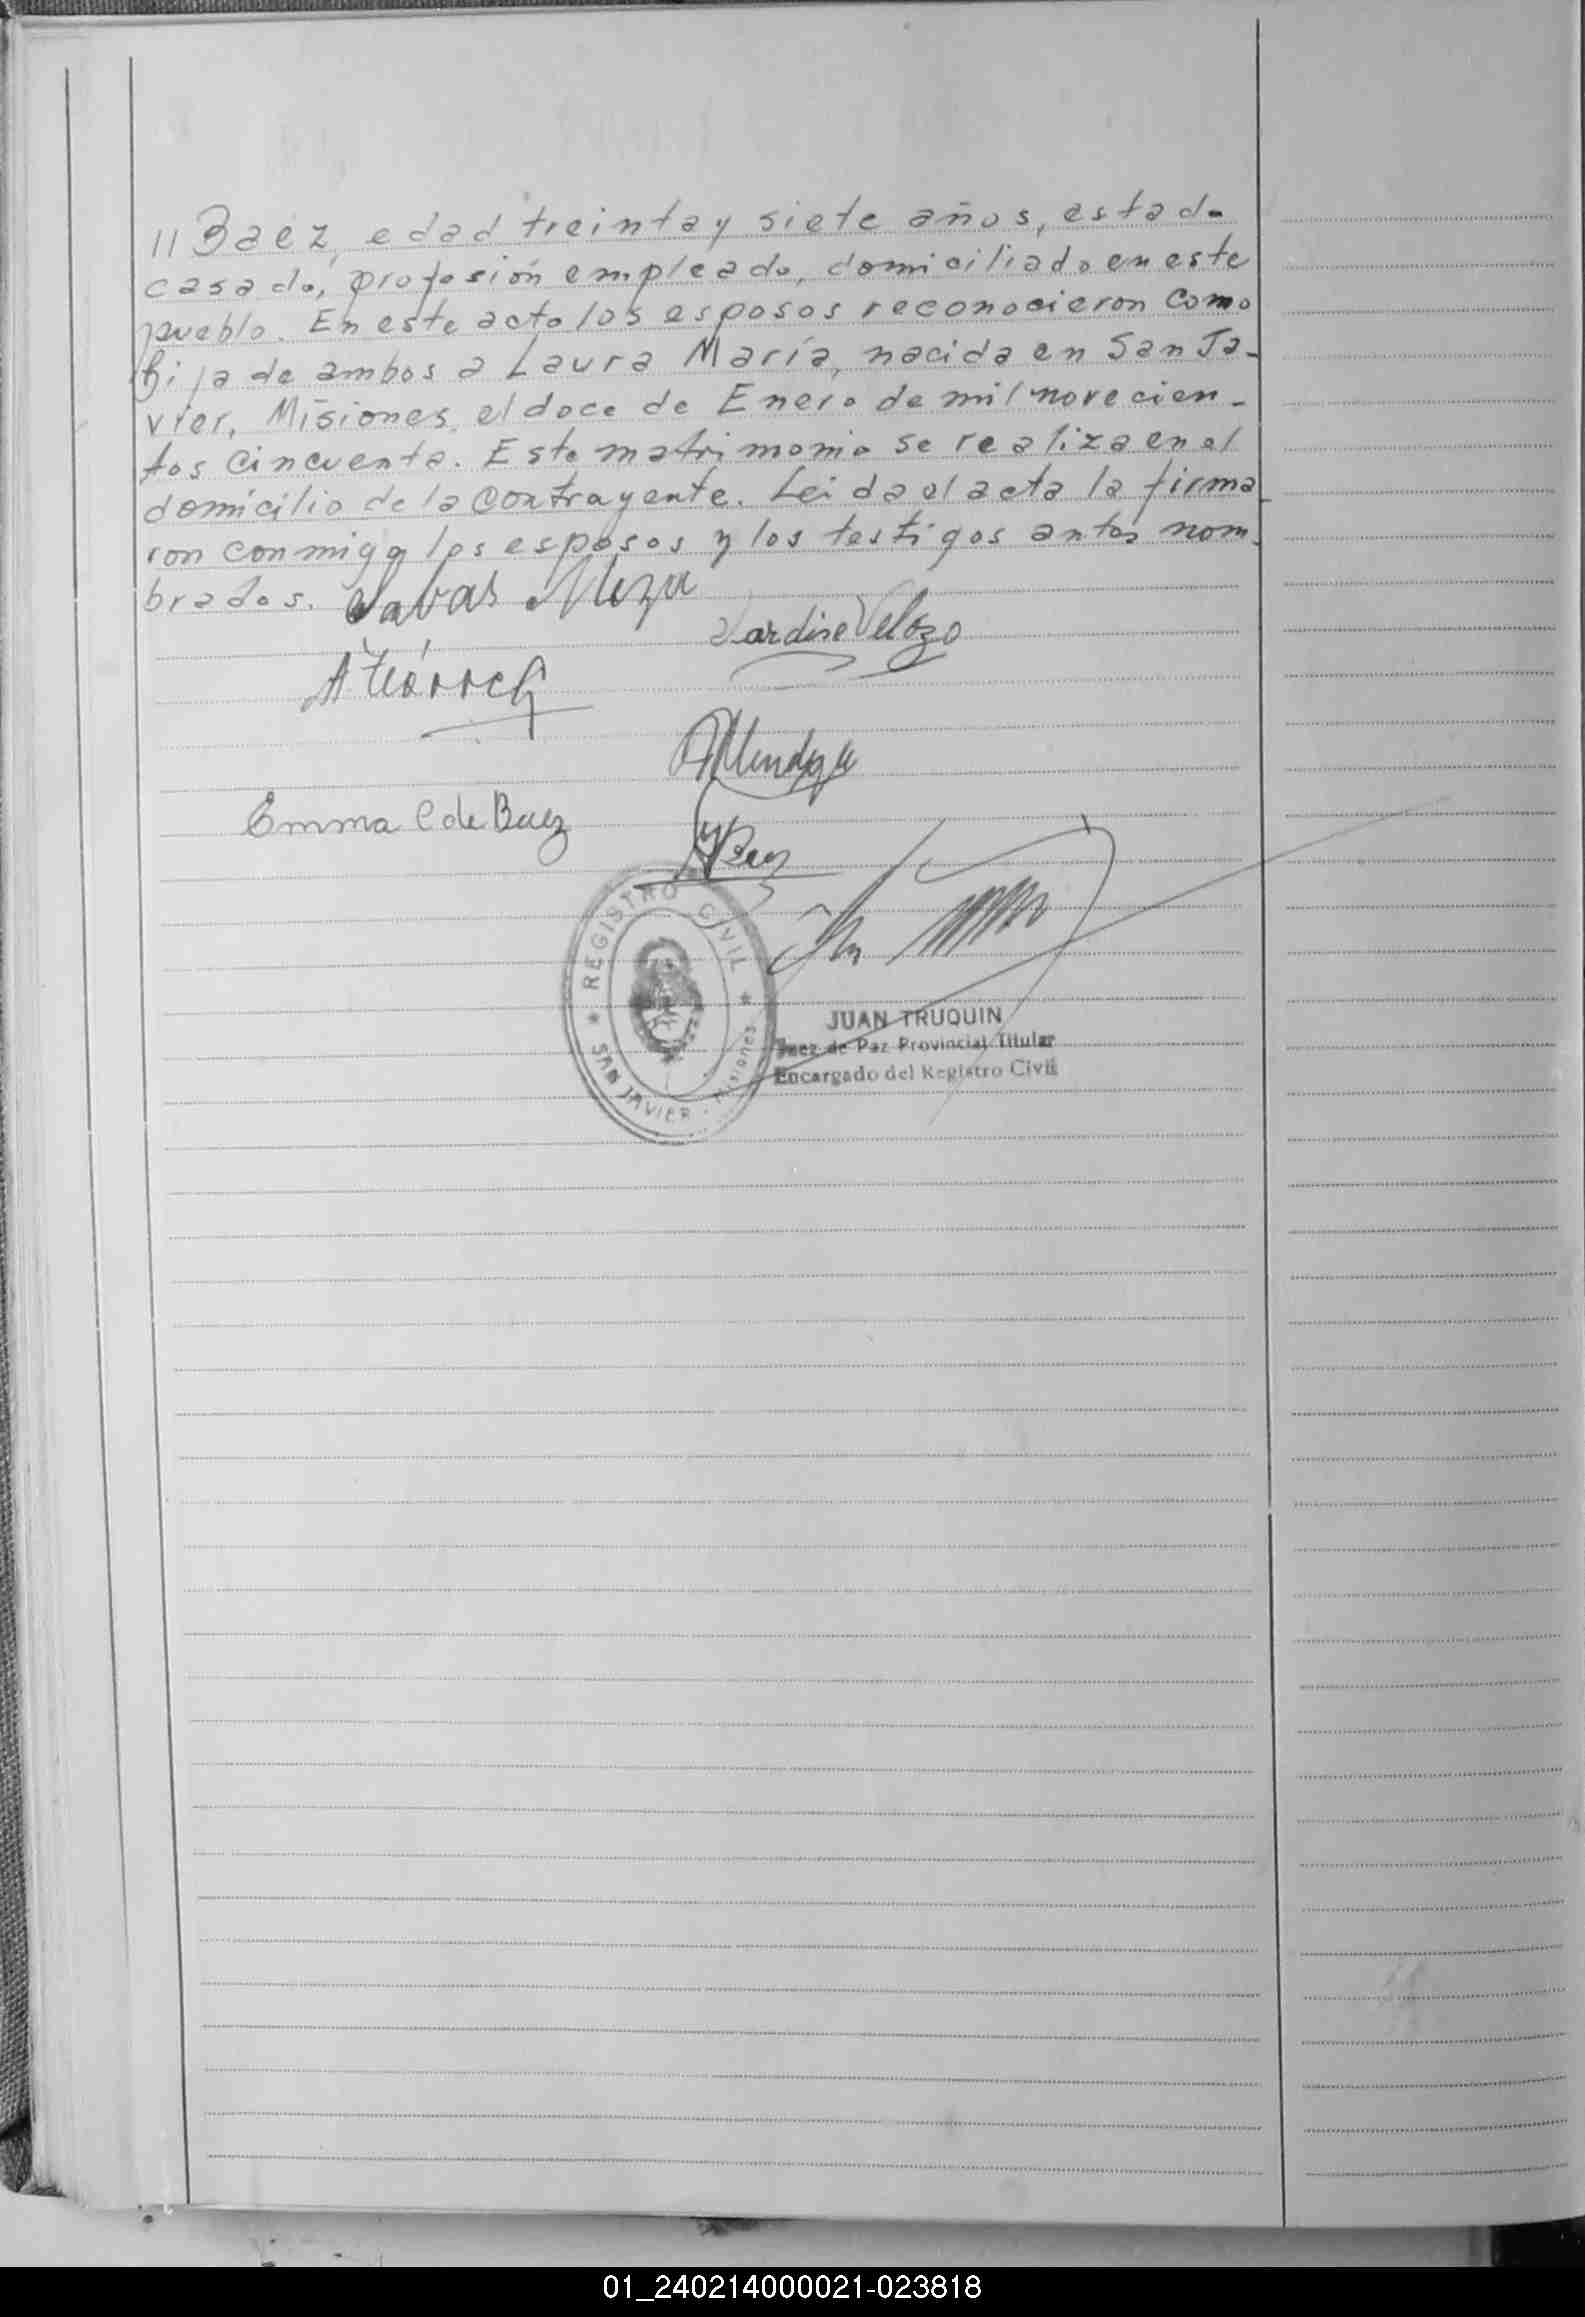 // Baez, edad treinta y siete años, estado
casado, profesión empleado, domiciliado en este
pueblo. En este acto los esposos reconocieron como
hija de ambos a Laura María, nacida en San Ja-
vier, Misiones, el doce de Enero de mil novecien-
tos cincuenta. Este matrimonio se realiza en el
domicilio de la contrayente. Leida el acta la firma
ron conmigo los esposos y los testigos antes nom-
brados. Savas Meza
Velozo
Mendoza
Emma C de Baez
Baez
REGISTRO CIVIL
SAN JAVIER - Misiones
JUAN TRUQUIN
Juez de Paz Provincial Titular
Encargado del Registro Civil
01_240214000021-023818